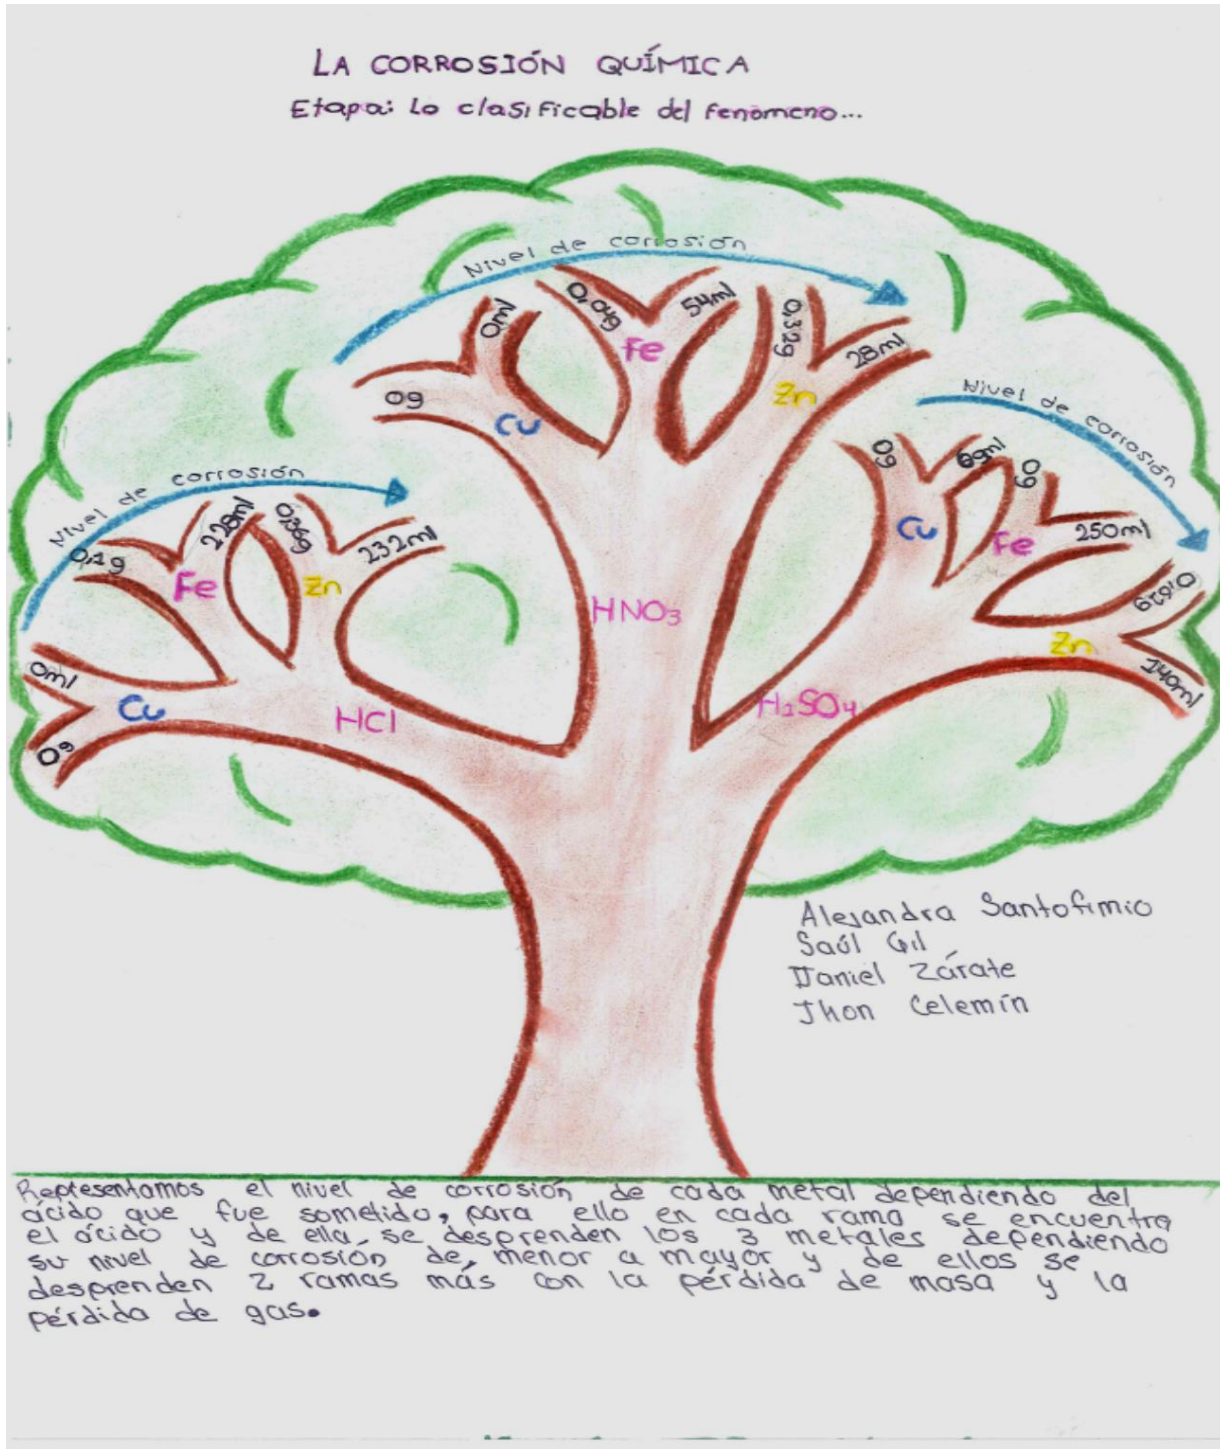 LA CORROSIÓN QUÍMICA
Etapa: Lo clasificable del fenómeno...
Nivel de corrosión
0g
0ml
Cu
0,04g
54ml
Fe
0,32g
28ml
Zn
HNO₃
Nivel de corrosión
0ml
0g
Cu
0,1g
228ml
Fe
0,36g
232ml
Zn
HCl
Nivel de corrosión
0g
69ml
Cu
0g
250ml
Fe
0,62g
140ml
Zn
H₂SO₄
Alejandra Santofimio
Saúl Gil
Daniel Zárate
Jhon Celemín
Representamos el nivel de corrosión de cada metal dependiendo del
ácido que fue sometido, para ello en cada rama se encuentra
el ácido y de ella se desprenden los 3 metales dependiendo
su nivel de corrosión de menor a mayor y de ellos se
desprenden 2 ramas más con la pérdida de masa y la
pérdida de gas.